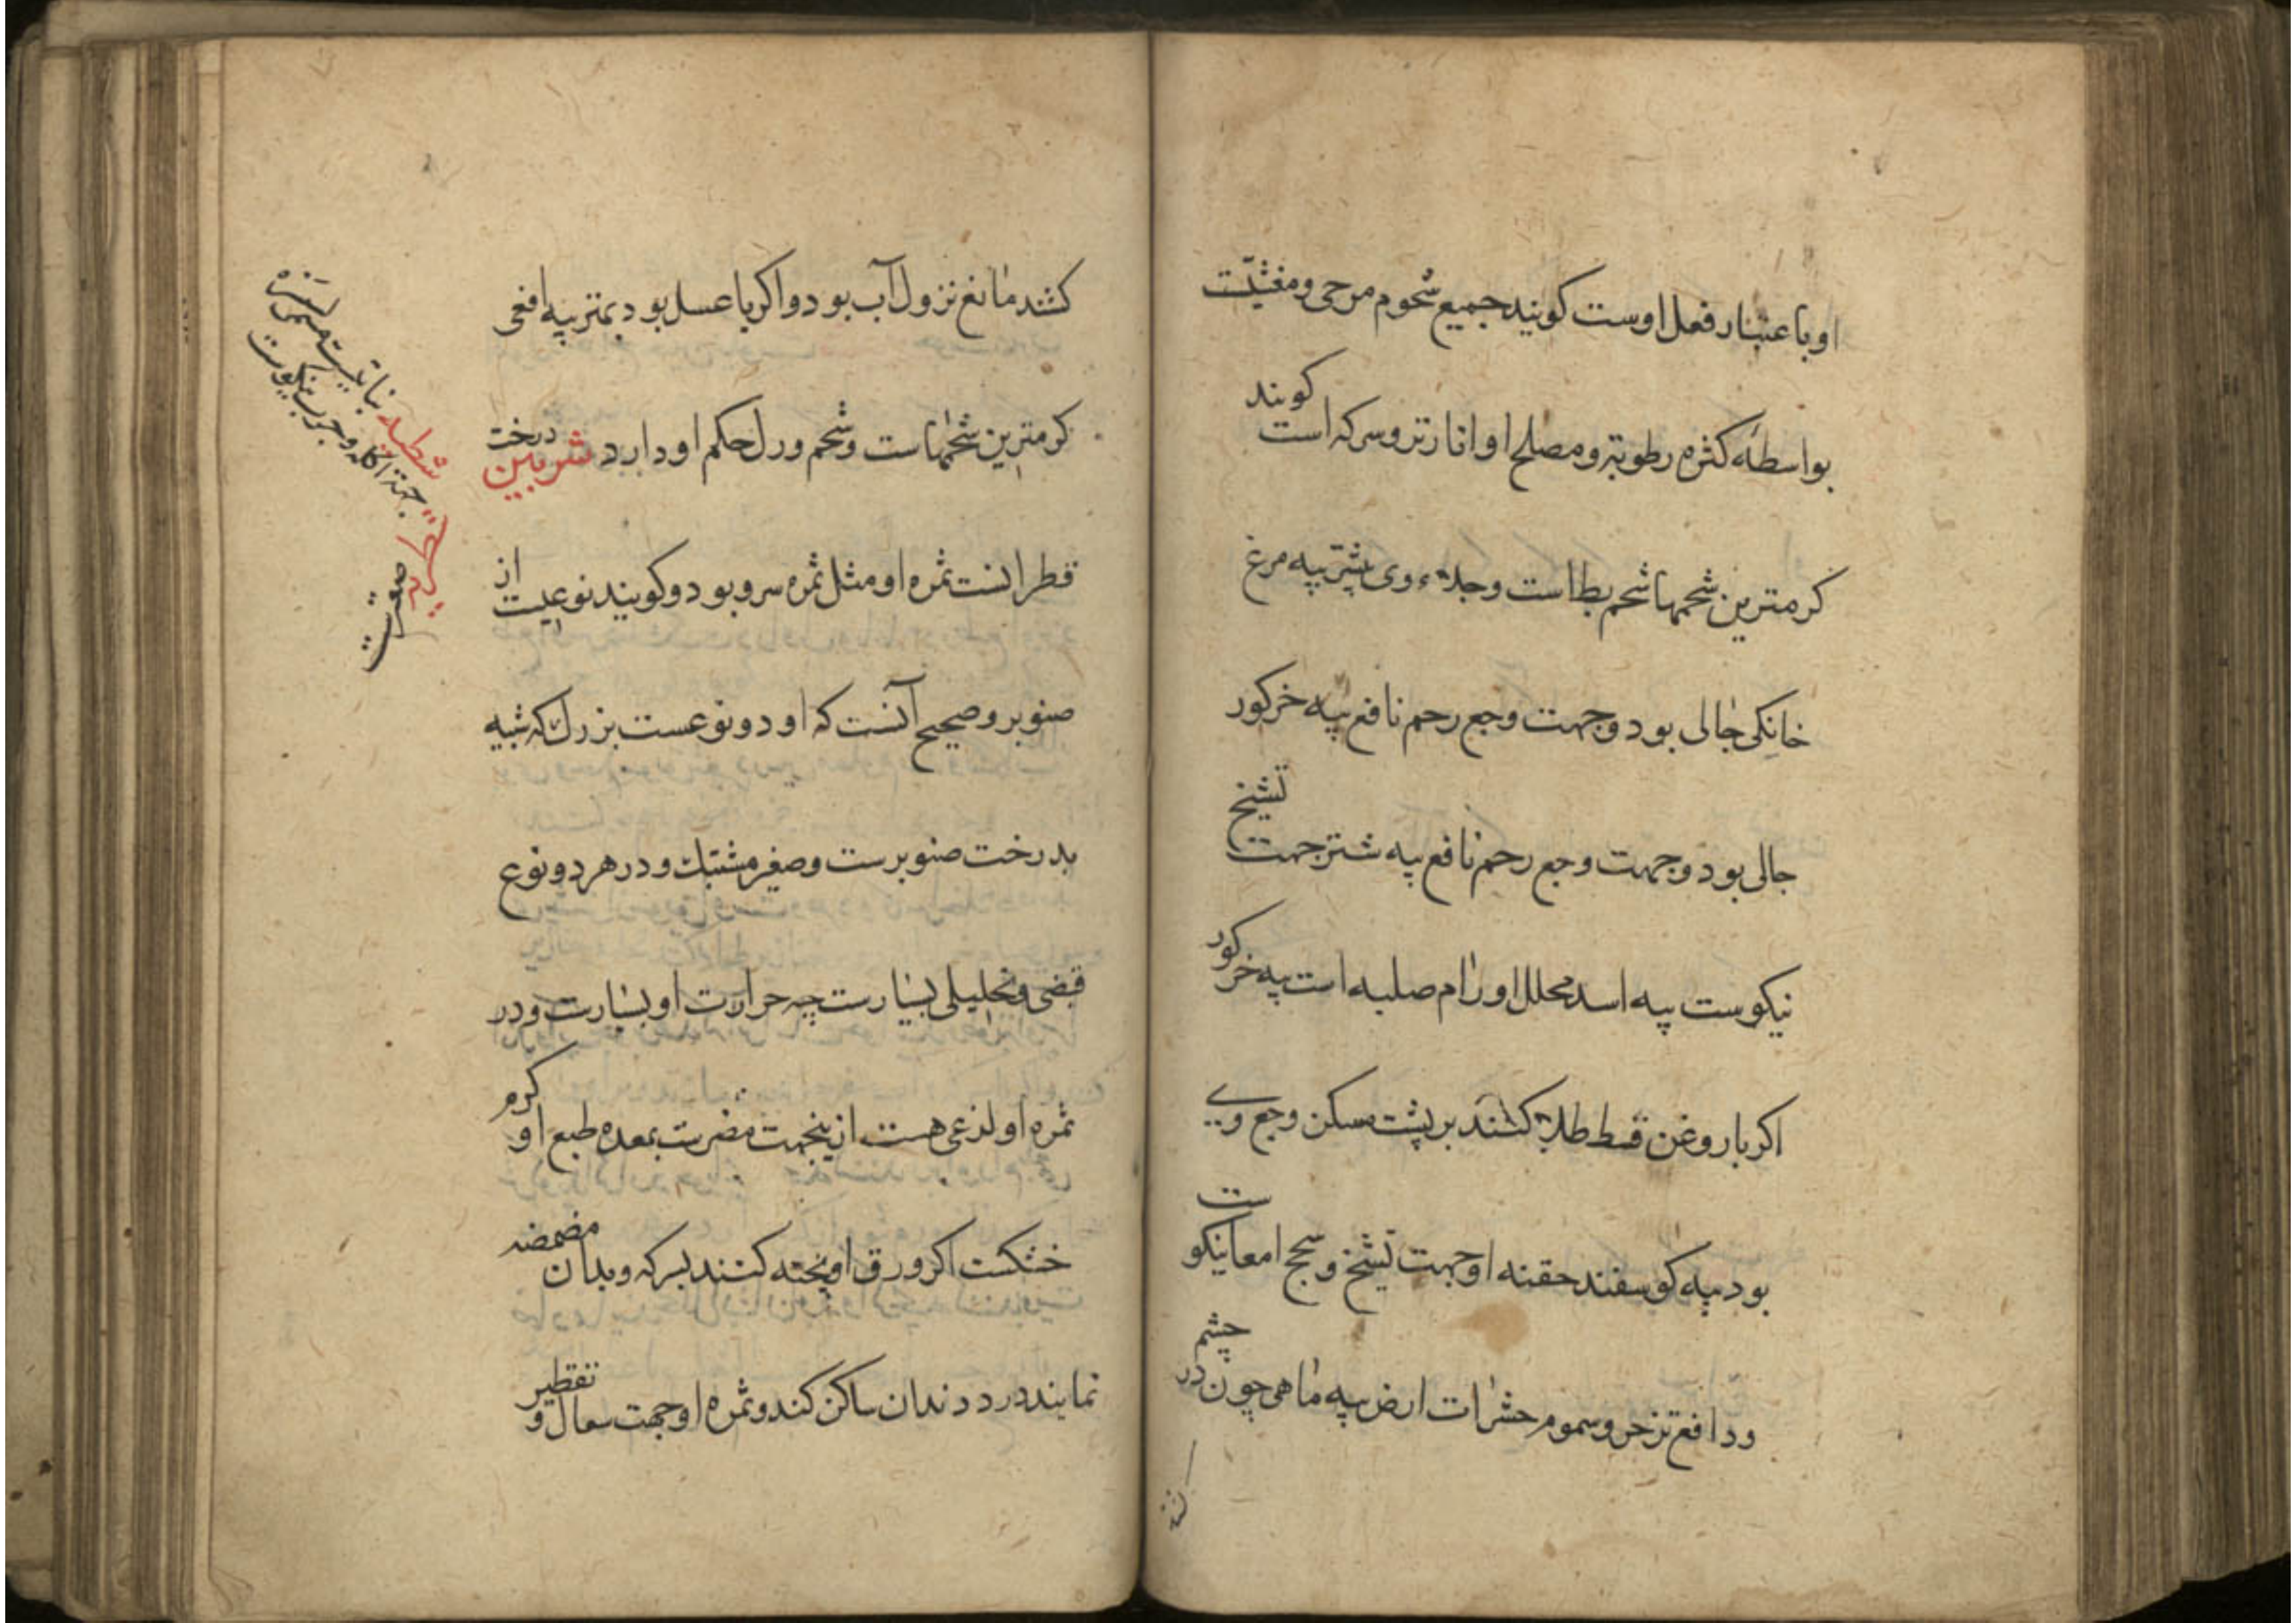 او باعتبار فعل اوست کویند جمیع شحوم مرخی و مغثیست
بواسطهٔ کثره رطوبة و مصلح او انار ترو سرکه است کویند
کرمترین شحمها شحم بط است و جلاء وی بیشتر پیه مرغ
خانکی جالی بود و جهت وجع رحم نافع پیه خرکور
جالی بود و جهت وجع رحم نافع پیه شتر جهت تشنج
نیکوست پیه اسد محلل اورام صلبه است پیه خرکور
اکر با روغن قسط طلا کنند بر پشت مسکن وجع وی
بود پیه کوسفند حقنه او جهت تشنج و سحج امعا نیکوست
و دافع تزحر و سموم حشرات ارض پیه ماهی چون در چشم
کنند
کشند مانع نزول آب بود و اکر با عسل بود بهتر پیه افعی
کرمترین شحمهاست و شحم ورل حکم او دارد شربین درخت
قطرانست ثمره او مثل ثمره سرو بود و کویند نوعیست از
صنوبر و صحیح آنست که او دو نوعست بزرک که شبیه
بدرخت صنوبرست و صغیر مشتبک و در هر دو نوع
قبضی و تحلیلی بسیارست چه حرارت او بسیارست و در
ثمره او لذعی هست ازینجهت مضرست بمعده طبع او کرم
خشکست اکر ورق او پخته کنند بسرکه و بدان مضمضه
نمایند درد دندان ساکن کند و ثمره او جهت سعال و تقطیر
شطبه نباتیست
جهة اکله و جرب نیکوست
صعترست